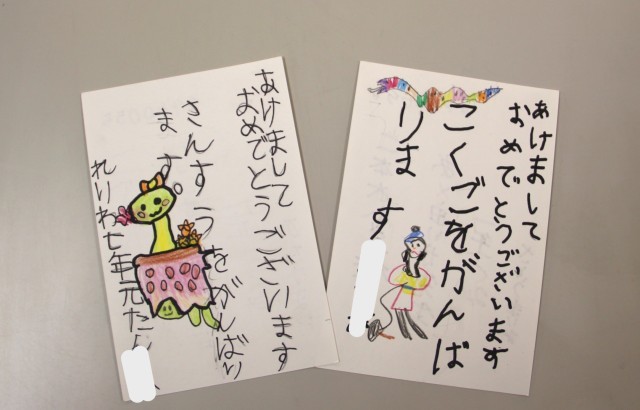 あけまして
おめでとうございます
さんすうをがんばり
ます。
れいわ七年元たん
あけまして
おめでとうございます
こくごをがんば
ります